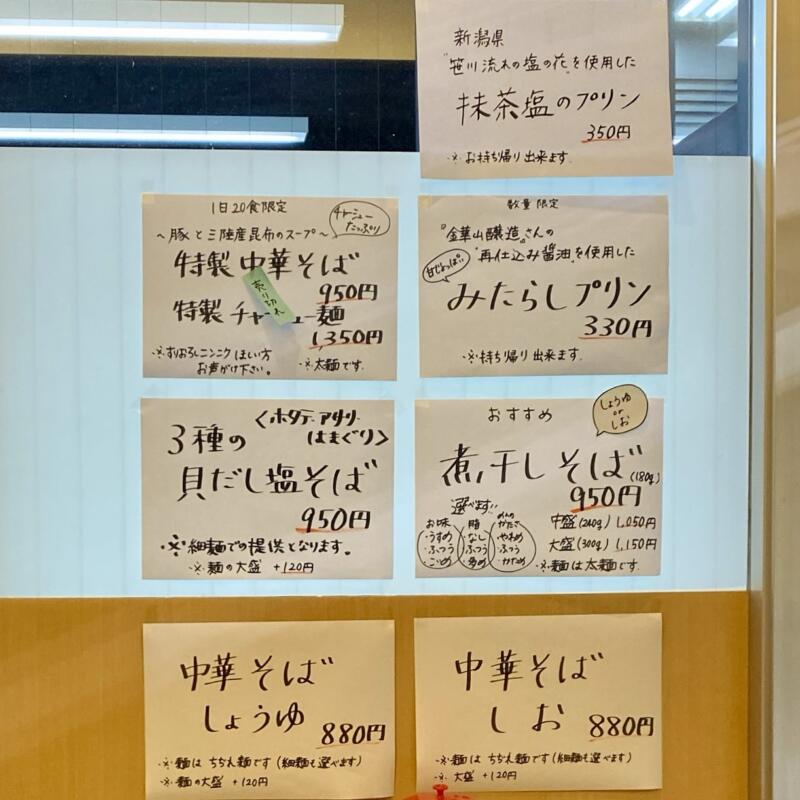 新潟県
"笹川流れの塩の花"を使用した
抹茶塩のプリン
350円
※お持ち帰り出来ます。
1日20食限定
チャーシューたっぷり
～豚と三陸産昆布のスープ～
特製中華そば
950円
売り切れ
特製チャーシュー麺
1,350円
※すりおろしニンニクほしい方
お声がけ下さい。
※太麺です。
数量限定
"金華山醸造"さんの
"再仕込み醤油"を使用した
甘じょっぱい
みたらしプリン
330円
※持ち帰り出来ます。
<ホタテ・アサリ・
はまぐり>
3種の
貝だし塩そば
950円
※細麺での提供となります。
※麺の大盛 +120円
おすすめ
しょうゆ
or
しお
煮干しそば(180g)
950円
選べます!!
お味
・うすめ
・ふつう
・こいめ
脂
・なし
・ふつう
・多め
めんのかたさ
・やわめ
・ふつう
・かため
中盛(240g) 1,050円
大盛(300g) 1,150円
※麺は太麺です。
中華そば
しょうゆ
880円
※麺は ちぢれ麺です(細麺も選べます)
※麺の大盛 +120円
中華そば
しお
880円
※麺は ちぢれ麺です(細麺も選べます)
※大盛 +120円